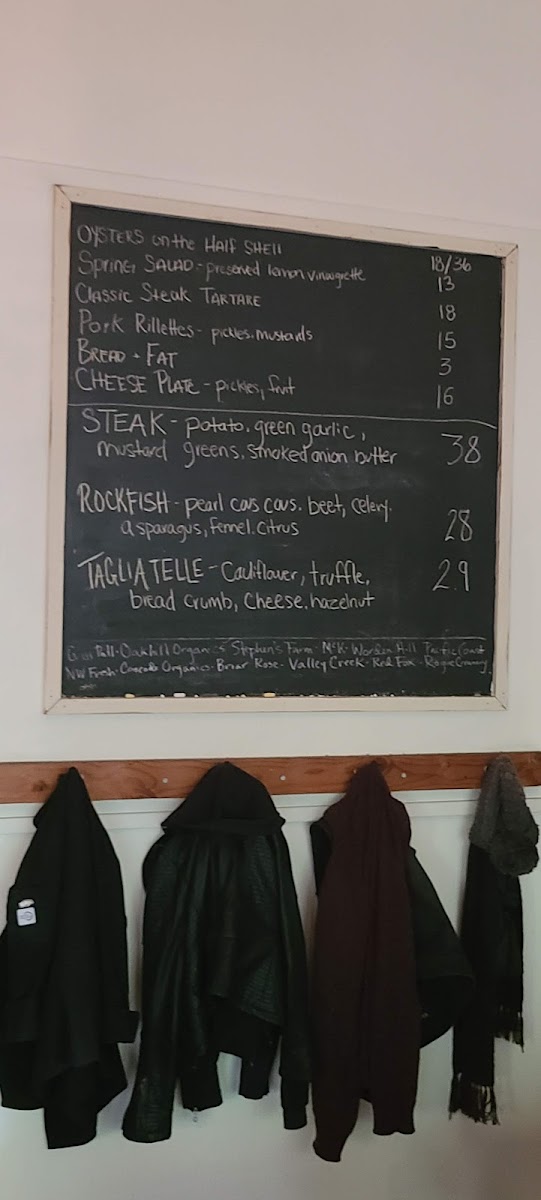 OYSTERS on the HALF SHELL 18/36
Spring SALAD - preserved lemon vinaigrette 13
Classic Steak TARTARE 18
Pork Rillettes - pickles, mustards 15
BREAD + FAT 3
CHEESE PLATE - pickles, fruit 16
STEAK - potato, green garlic,
mustard greens, smoked onion butter 38
ROCKFISH - pearl cous cous, beet, celery,
asparagus, fennel, citrus 28
TAGLIATELLE - Cauliflower, truffle, 29
bread crumb, cheese, hazelnut
Oakhill Organics · Stephens Farm · Worden Hill · Pacific Coast
NW Fresh · Organics · Briar Rose · Valley Creek · Red Fox · Rogue Creamery